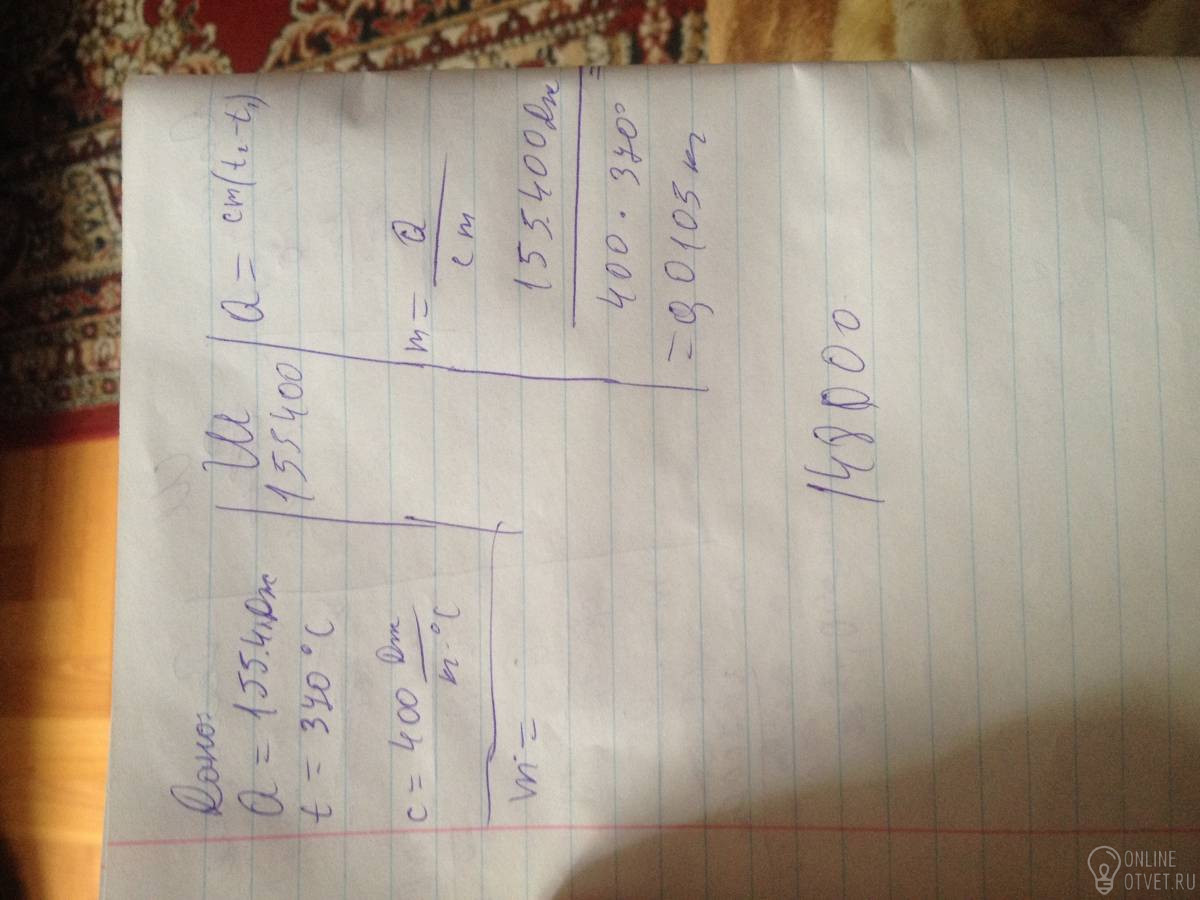 Дано:
Q = 155.4кДж
t = 370°C
c = 400 Дж
кг·°C
m =
СИ
155400
Q = cm(t₂-t₁)
m = Q
cm
155.400 Дж
400 · 370° =
= 0,0105 кг
148000
ONLINE
OTVET.RU